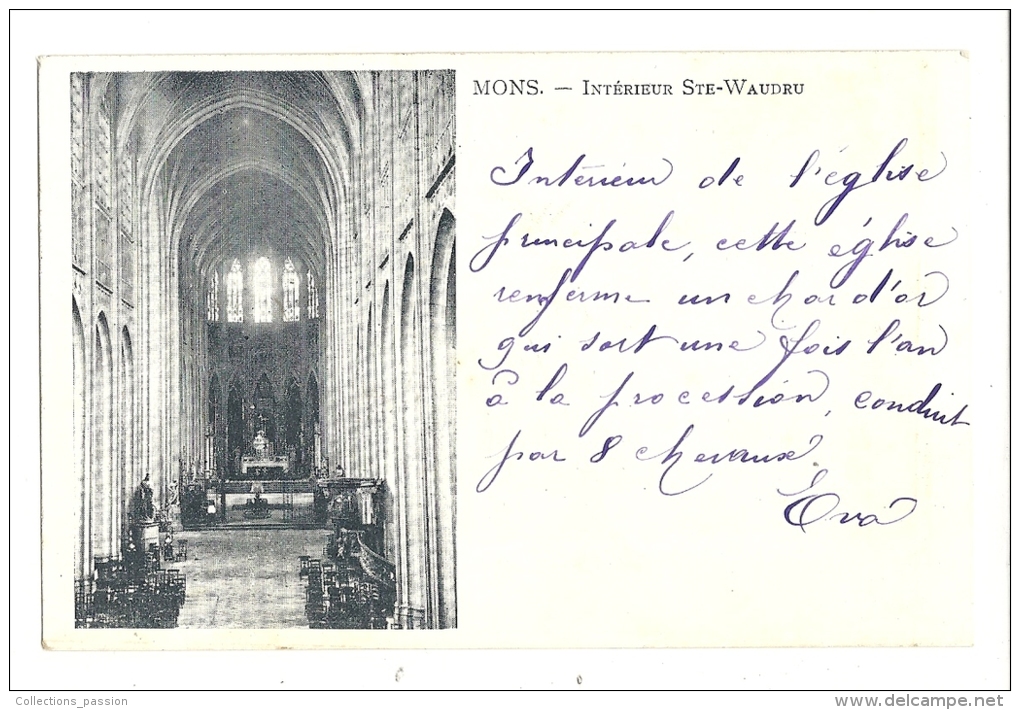 MONS. — INTÉRIEUR STE-WAUDRU
Intérieur de l'église
principale, cette église
renferme un char d'or
qui sort une fois l'an
à la procession, conduit
par 8 chevaux.
Eva
Collections_passion
www.delcampe.net